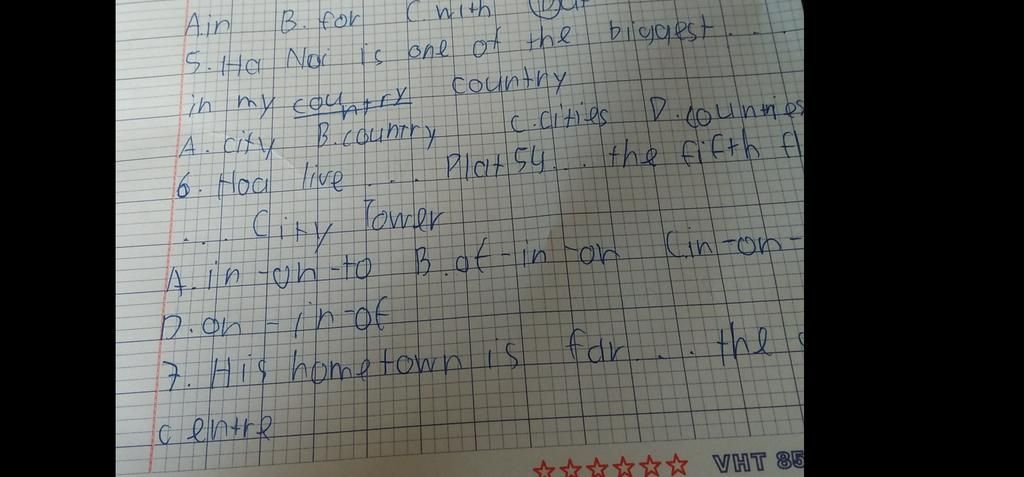 A.in B. for C. with D.
5. Ha Noi is one of the biggest ....
in my country country
A. city B. country C. cities D. countries
6. Hoa live .... Plat 54 ... the fifth fl
.... City Tower
A. in - on - to B. of - in - on C. in - on -
D. on - in - of
7. His hometown is far ... the
centre
☆☆☆☆☆☆ VHT 85